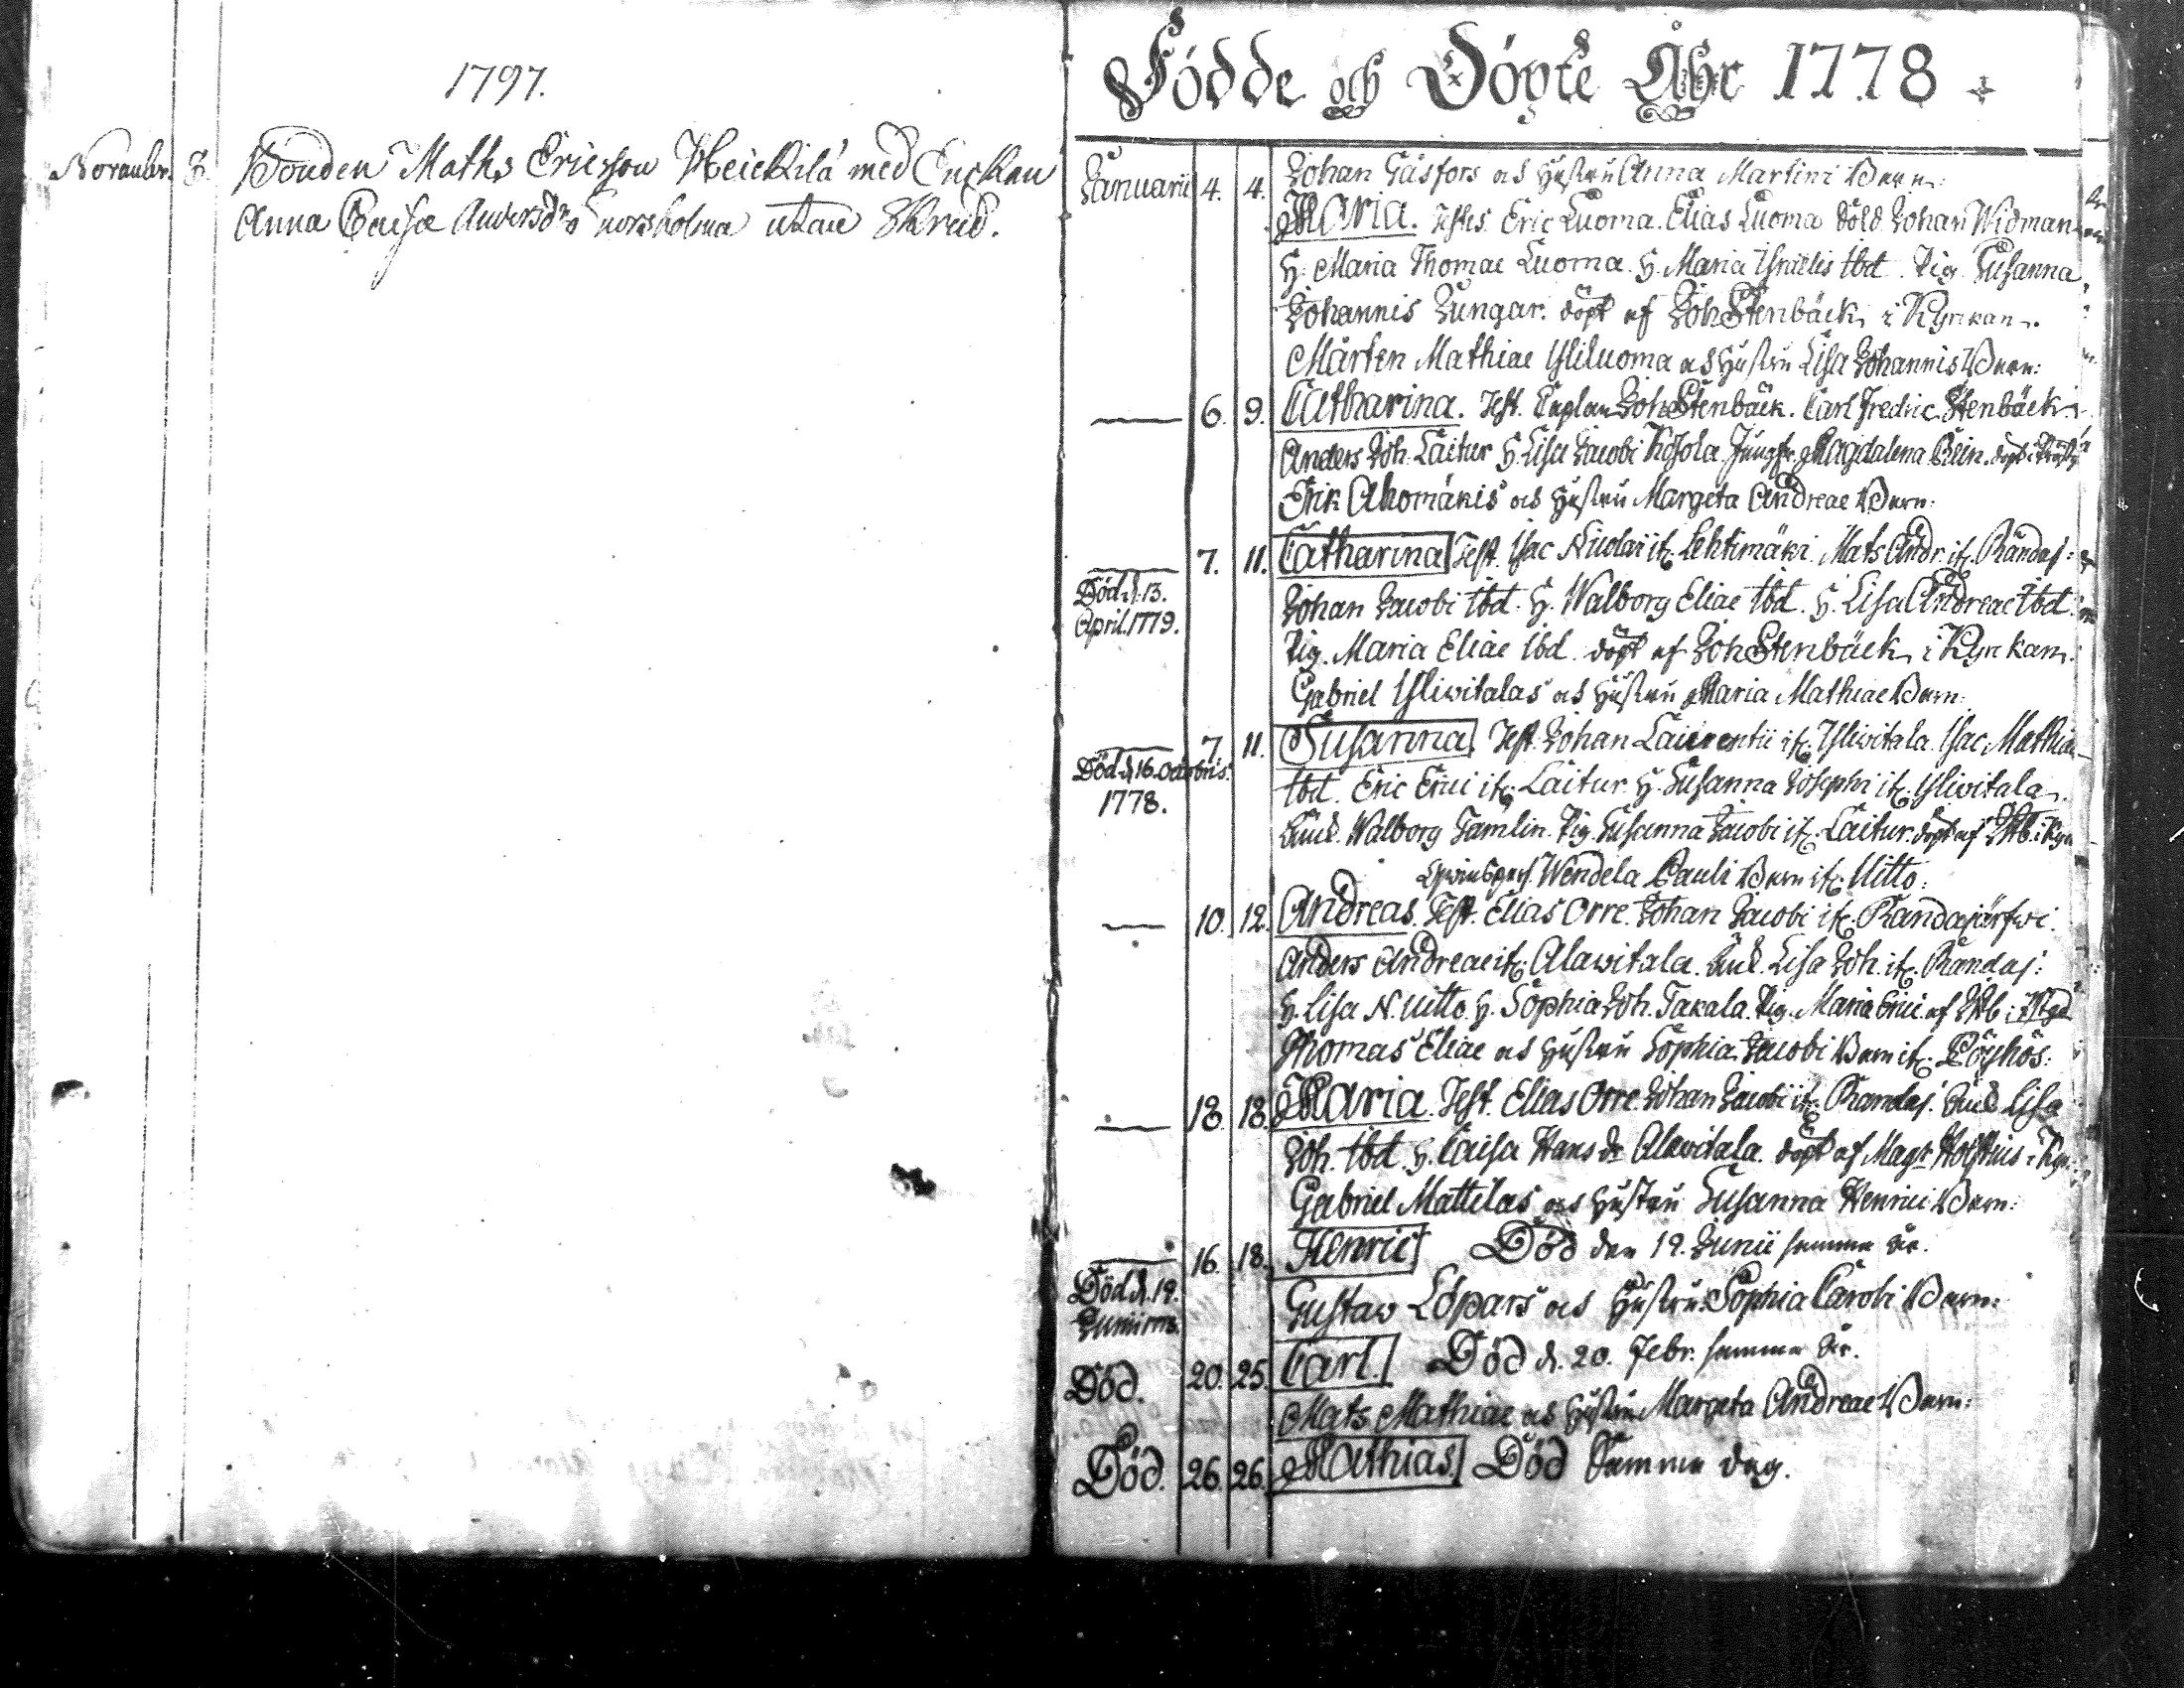 1797.
November. 3. Bonden Maths Ericsson Heickilä med Enckan
Anna Caisa Andersdr Snorsholma utan Skrud.
Födde och Döpte Åhr 1778
Januarii 4. 4. Johan Gäsfors och Hustru Anna Martini Barn:
Maria. Testes. Eric Luoma. Elias Luoma Sold. Johan Widman
H: Maria Thomae Luoma. H. Maria Israelis ibd. Pig. Susanna
Johannis Jungar. döpt af Joh Stenbäck i Kyrkan.
Mårten Mathiae Yliluoma och Hustru Lisa Johannis Barn:
6. 9. Catharina. Test. Caplan Joh Stenbäck. Carl Fredric Stenbäck
Anders Joh. Laitur H. Lisa Jacobi Kosola Jungfr. Magdalena
Erik Ahomäkis och Hustru Margeta Andreae Barn:
7. 11. Catharina Test. Isac Nicolai it. Lehtimäki. Mats Andr. it. Randaj:
Död d. 13.
April. 1779.
Johan Jacobi ibd. H. Walborg Eliae ibd. H. Lisa Andreae ibd.
Pig. Maria Eliae ibd. döpt af Joh Stenbäck i Kyrkan.
Gabriel Yliwitalas och Hustru Maria Mathiae Barn:
7. 11. Susanna Test. Johan Laurentii it. Yliwitala. Isac Mathiae
Död d 16. Octobris.
1778.
ibd. Eric Erici it. Laitur. H. Susanna Josephi it. Yliwitala.
Walborg Tamlin. Pig. Susanna Jacobi it. Laitur. döpt af Stb. i Kyrk
Wendela Pauli Barn it. Uitto:
10. 12. Andreas. Test. Elias Orre. Johan Jacobi it. Randajärfwi.
Anders Andreae it. Alawitala. Lisa Joh. it. Randaj:
H. Lisa N. Uitto. H. Sophia Joh. Takala. Pig. Maria Erici. af Stb i
Thomas Eliae och Hustru Sophia Jacobi Barn it. Pöyhös:
18. 18. Maria. Test. Elias Orre. Johan Jacobi it. Randaj. Lisa
Joh. ibd. H. Caisa Hans dr Alawitala. döpt af Mag:r i Kyrk.
Gabriel Mattilas och Hustru Susanna Henrici Barn:
16. 18. Henric Död den 19. Junii samma år.
Död d. 19.
Junii
Gustaw Lopars och Hustru Sophia Caroli Barn:
Död. 20. 25. Carl. Död d. 20. Febr. samma år.
Mats Mathiae och Hustru Margeta Andreae Barn:
Död. 26. 26. Mathias. Död Samma dag.